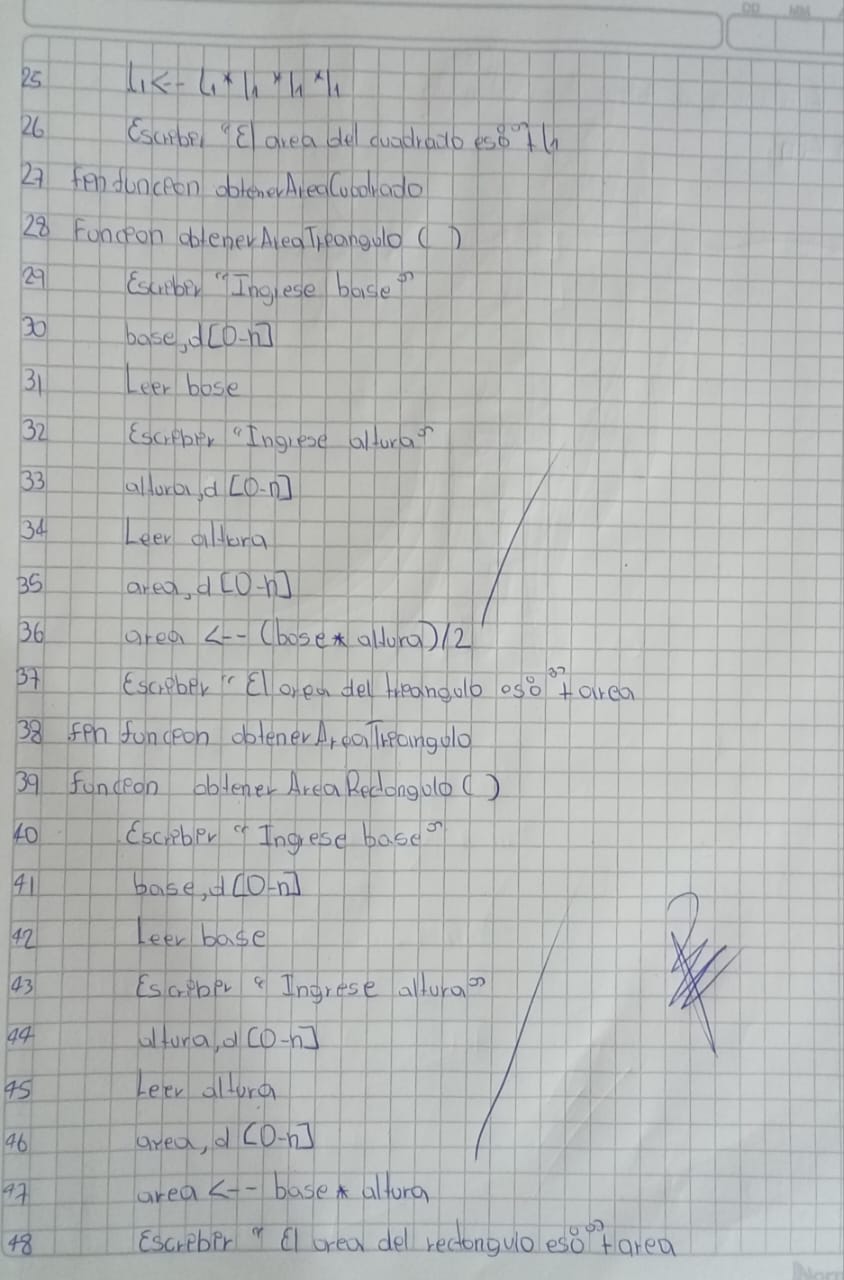 25 l1<-- l1*l1*l1*l1
26 Escribir "El area del cuadrado es:"+l1
27 fin funcion obtenerAreaCuadrado
28 Funcion obtenerAreaTriangulo ( )
29 Escribir "Ingrese base"
30 base,d[0-n]
31 Leer base
32 Escribir "Ingrese altura"
33 altura,d [0-n]
34 Leer altura
35 area,d[0-n]
36 area <-- (base* altura)/2
37 Escribir "El area del triangulo es:"+area
38 fin funcion obtenerAreaTriangulo
39 funcion obtenerAreaRectangulo ( )
40 Escribir "Ingrese base"
41 base,d[0-n]
42 Leer base
43 Escribir "Ingrese altura"
44 altura,d[0-n]
45 Leer altura
46 area,d[0-n]
47 area <-- base* altura
48 Escribir "El area del rectangulo es:"+area